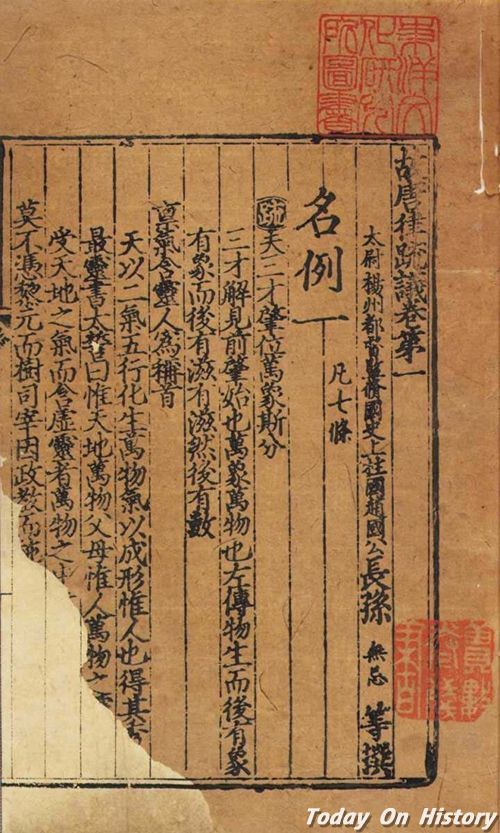 東洋文
化研究
所圖書
故唐律疏議卷第一
太尉揚州都督監修國史上柱國趙國公長孫無忌等撰
名例一 凡七條
疏夫三才肇位萬象斯分
三才解見前肇始也萬象萬物也左傳物生而後有象
有象而後有滋有滋然後有數
稟氣含靈人為稱首
天以二氣五行化生萬物氣以成形惟人也得其
最靈書太誓曰惟天地萬物父母惟人萬物之
受天地之氣而含虛靈者萬物之
莫不憑黎元而樹司宰因政教而
Today On History